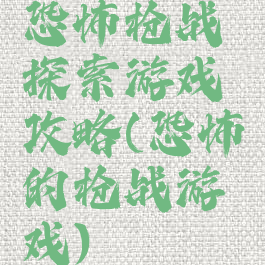 恐怖枪战
探索游戏
攻略(恐怖
的枪战游
戏)